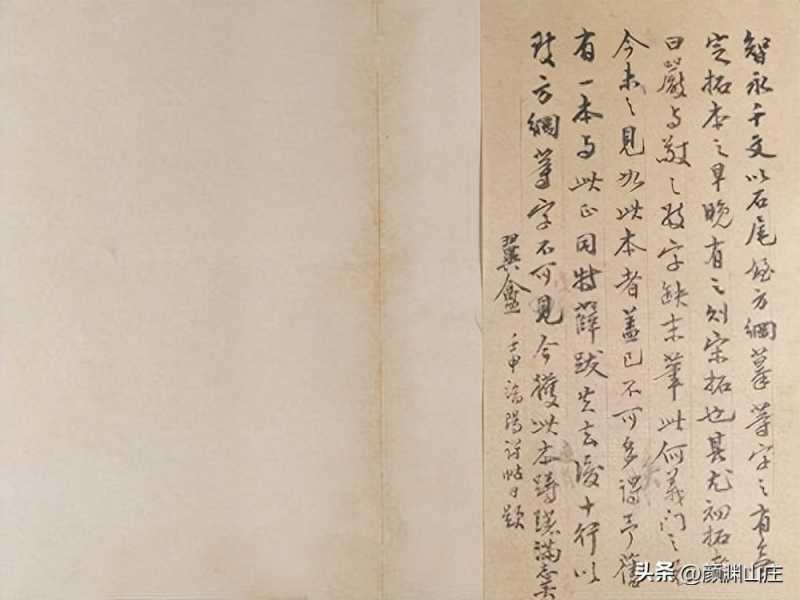 智永千文以石尾姪方綱摹等字之有無
定拓本之早晚有之則宋拓也其尤初拓者
曰嚴与敬之敬字缺末筆此何義門之
今未之見如此本者蓋已不可多得予舊
有一本与此正同特薛跋失去後十行以
致方綱等字不可見今獲此本躊躇滿志矣
翼盦 壬申 日題
头条 @颜渊山庄